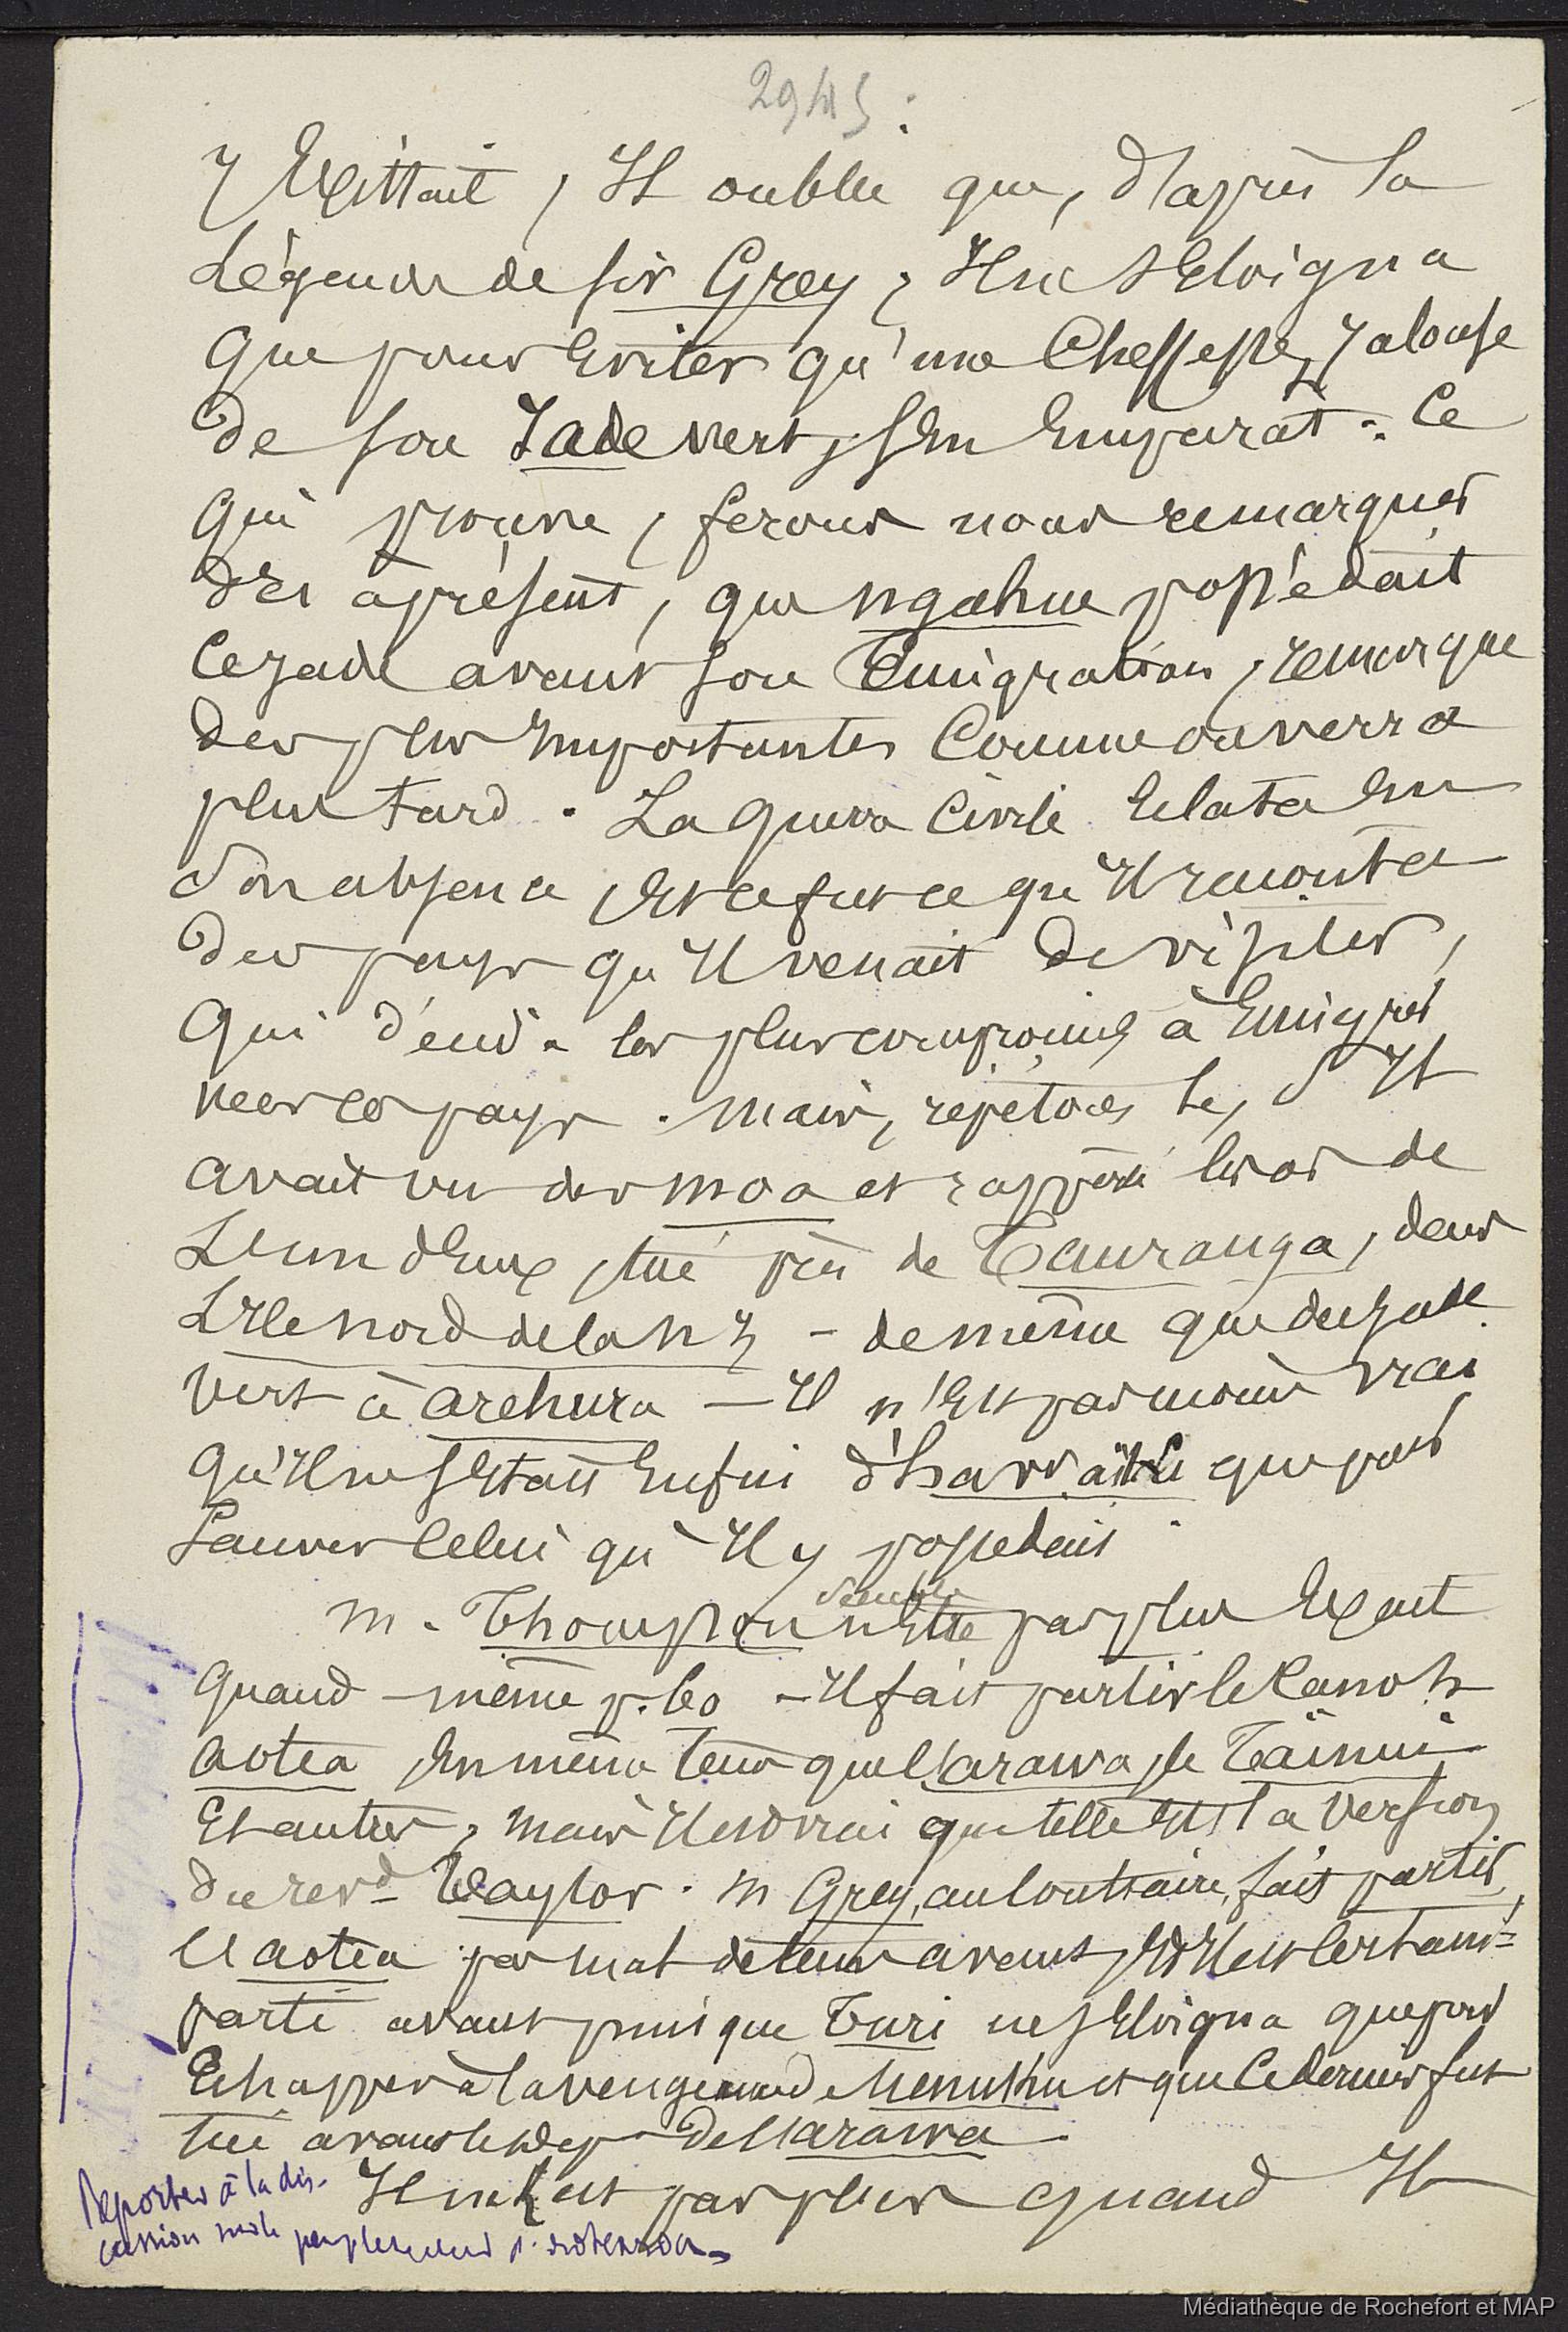 2945
y Existait, Il oublie que, d'après la
Légende de sir Grey, Il ne s'Eloigna
que pour Eviter qu'une Cheffesse, Jalouse
de son Jade vert, s'En Emparât. Ce
qui prouve, ferons nous remarquer
dès àprésent, que ngahue possédait
ce jade avant son Emigration, remarque
des plus Importantes Comme on verra
plus tard. La guerre Civile Eclata En
son absence, Et ce fut ce qu'Il raconta
des pays qu'Il venait de visiter,
qui décida les plus compromis à Emigrer
vers ce pays. mais, répétons le, s'Il
avait vu des moa et rapporté les os de
L'un d'Eux, tué près de Tauranga, dans
L'Ile nord de la n Z - de même que du jade
vert à arehura - Il n'Est pas moins vrai
qu'Il ne s'Etait Enfui d'hawaïki que pour
sauver Celui qu'Il y possédait.
m. Thompson semble n'Etre pas plus Exact
quand - même p. 60 - Il fait partir le Canoh
aotea En même tems que l'arawa, le Taïnui
Et autres, mais Il est vrai que telle Est la version
du revd Taylor. m Grey, au Contraire, fait partir
l'aotea pas mal de tems avant, Et Il est Certaint=
parti avant puisque Turi ne s'Eloigna que pour
Echapper à la vengeance de Uenuku et que Ce dernier fut
tué avant le dep de l'arawa.
Il ne l'est pas plus quand Il
Reporter à la dis-
cussion sur le peuplement p.
Médiathèque de Rochefort et MAP